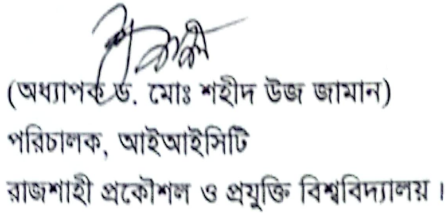 (অধ্যাপক ড. মোঃ শহীদ উজ জামান)
পরিচালক, আইআইসিটি
রাজশাহী প্রকৌশল ও প্রযুক্তি বিশ্ববিদ্যালয়।